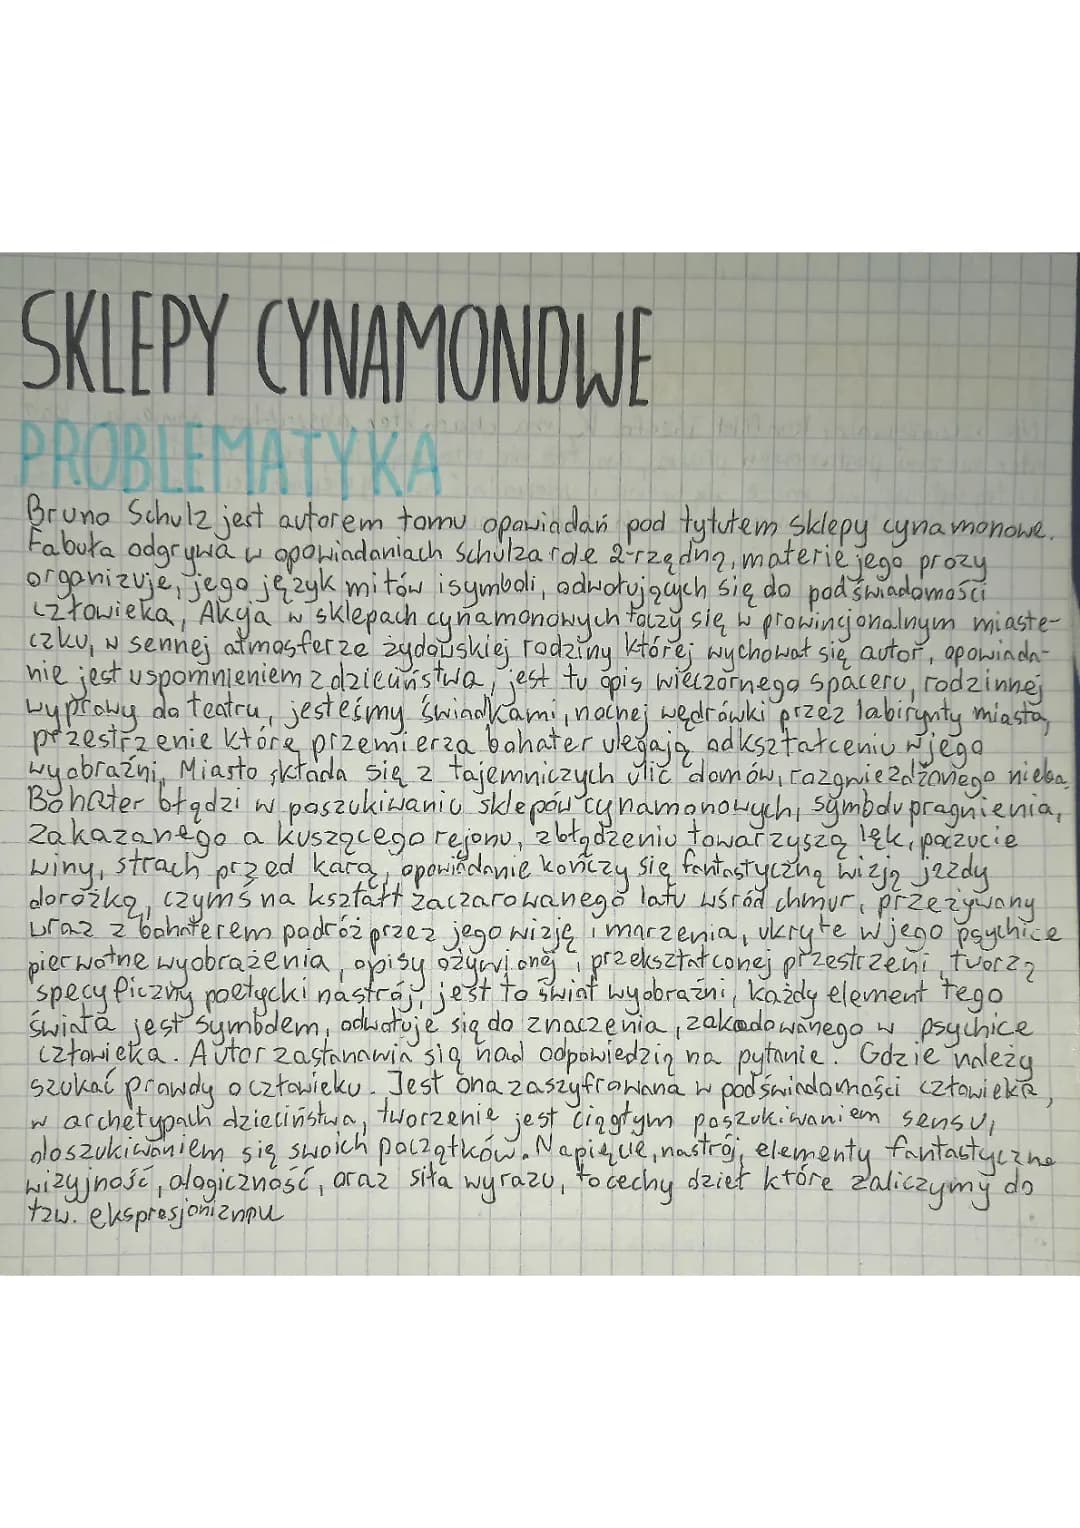 SKLEPY CYNAMONOWE
PROBLEMATYKA
Bruno Schulz jest autorem tomu opowiadań pod tytułem Sklepy cynamonowe.
Fabuła odgrywa w opowiadaniach Schulza rolę 2-rzędną, materię jego prozy
organizuje, jego język mitów i symboli, odwołujących się do podświadomości
człowieka, Akcja w sklepach cynamonowych toczy się w prowincjonalnym miaste-
czku, w sennej atmosferze żydowskiej rodziny której wychował się autor, opowiada-
nie jest uspomnieniem z dzieciństwa, jest tu opis wieczornego spaceru, rodzinnej
wyprawy do teatru, jesteśmy świadkami, nocnej wędrówki przez labirynty miasta,
przestrzenie które przemierza bohater ulegają odkształceniu w jego
wyobraźni, Miasto składa się z tajemniczych ulic domów, rozgwieżdżonego nieba.
Bohater błądzi w poszukiwaniu sklepów cynamonowych, symbolu pragnienia,
zakazanego a kuszącego rejonu, zbłądzeniu towarzyszą lęk, poczucie
winy, strach przed karą, opowiadanie kończy się fantastyczną wizją jazdy
dorożką, czymś na kształt zaczarowanego lotu wśród chmur, przeżywany
wraz z bohaterem podróż przez jego wizję i marzenia, ukryte w jego psychice
pierwotne wyobrażenia, opisy ożywionej i przekształconej przestrzeni tworzą
specyficzny poetycki nastrój, jest to świat wyobraźni, każdy element tego
świata jest symbolem, odwołuje się do znaczenia, zakodowanego w psychice
człowieka. Autor zastanawia się nad odpowiedzią na pytanie. Gdzie należy
szukać prawdy o człowieku. Jest ona zaszyfrowana w podświadomości człowieka,
w archetypach dzieciństwa, tworzenie jest ciągłym poszukiwaniem sensu,
doszukiwaniem się swoich początków. Napięcie, nastrój, elementy fantastyczne
wizyjność, alogiczność, oraz siła wyrazu, to cechy dzieł które zaliczymy do
tzw. ekspresjonizmu